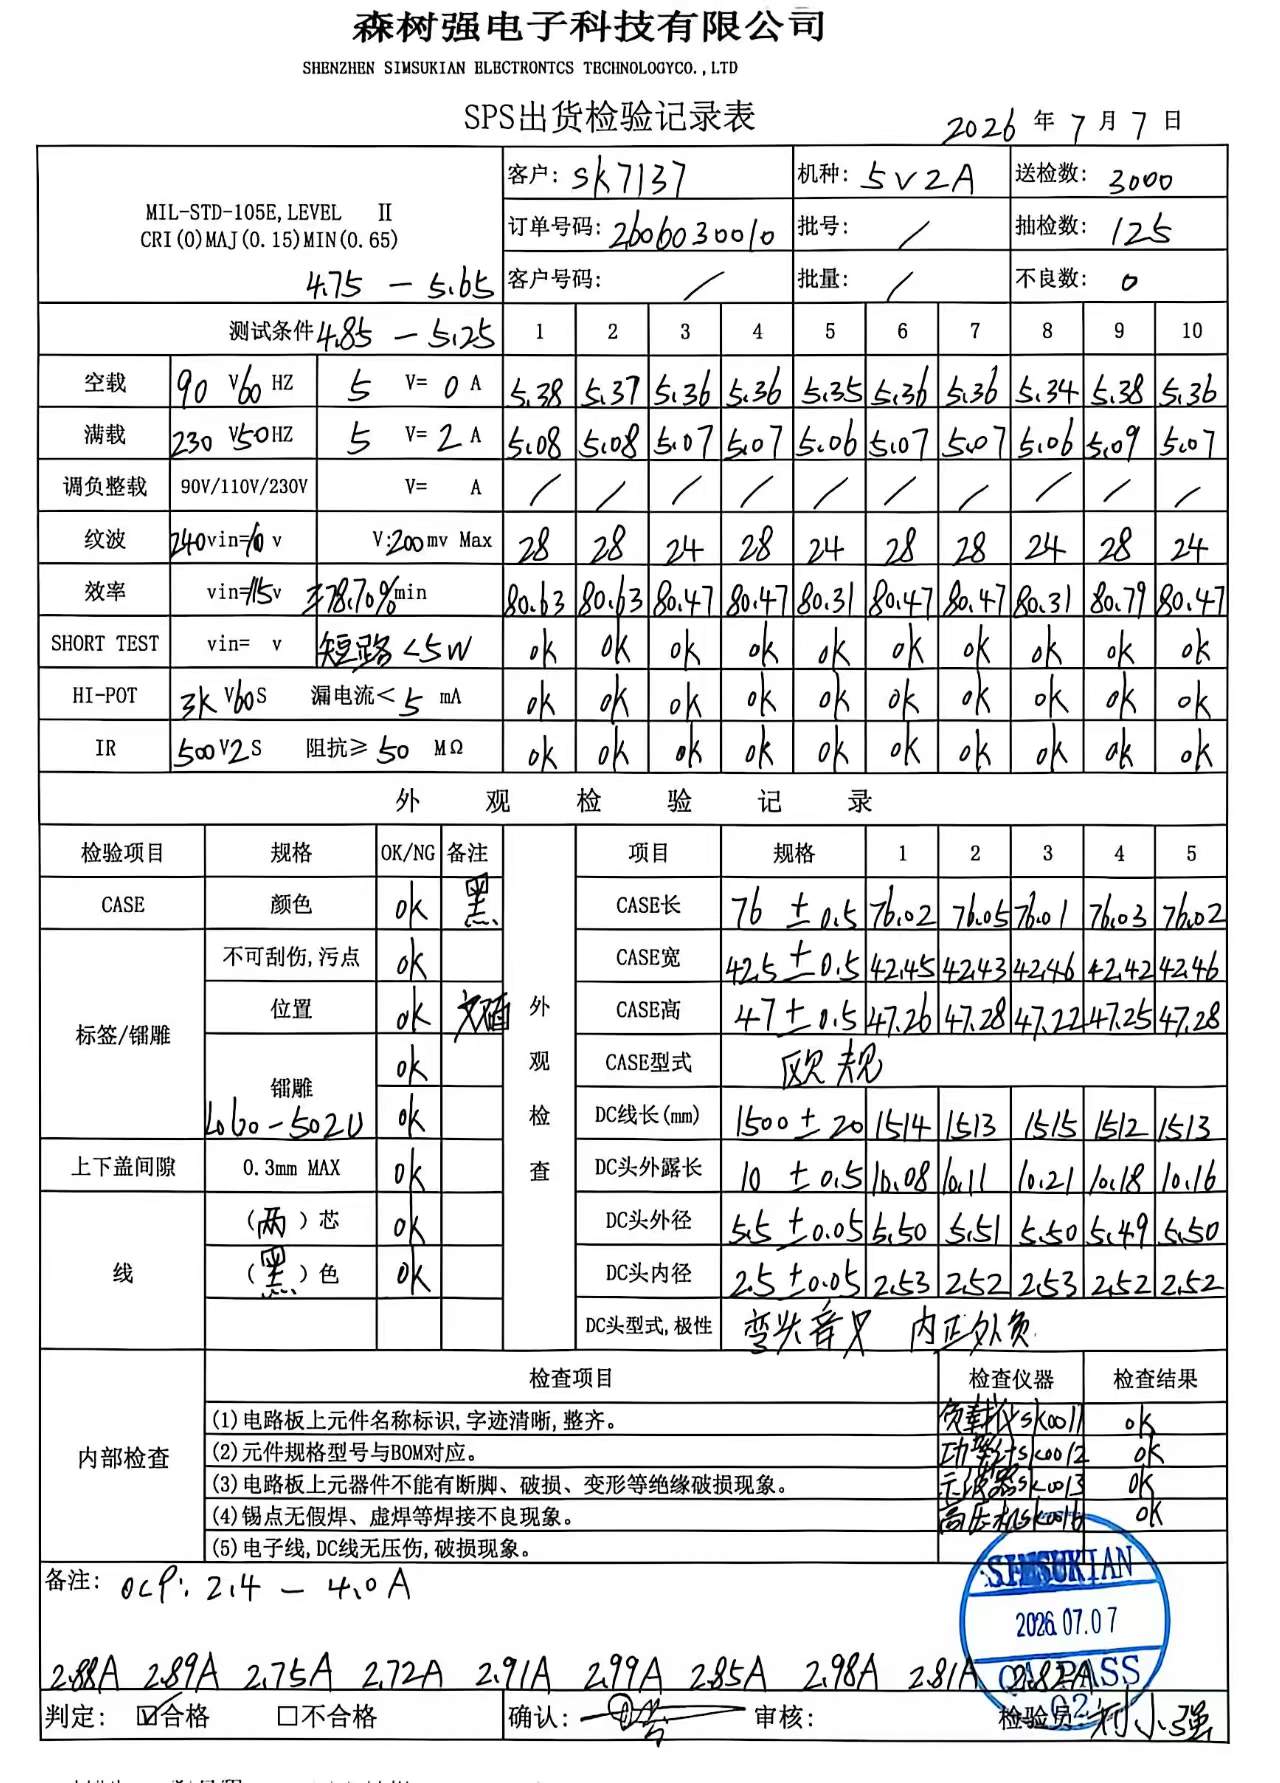 森树强电子科技有限公司
SHENZHEN SIMSUKIAN ELECTRONTCS TECHNOLOGYCO.,LTD
SPS出货检验记录表
2026 年 7 月 7 日
MIL-STD-105E,LEVEL Ⅱ
CRI(0)MAJ(0.15)MIN(0.65)
4.75 - 5.65
客户: SK7137 机种: 5V2A 送检数: 3000
订单号码: 2606030010 批号: / 抽检数: 125
客户号码: / 批量: / 不良数: 0
测试条件 4.85 - 5.25 1 2 3 4 5 6 7 8 9 10
空载 90 V 60 HZ 5 V= 0 A 5.38 5.37 5.36 5.36 5.35 5.36 5.36 5.34 5.38 5.36
满载 230 V 50 HZ 5 V= 2 A 5.08 5.08 5.07 5.07 5.06 5.07 5.07 5.06 5.09 5.07
调负整载 90V/110V/230V V= A / / / / / / / / / /
纹波 240vin= v V:200mv Max 28 28 24 28 24 28 28 24 28 24
效率 vin=115v ≥78.70%min 80.63 80.63 80.47 80.47 80.31 80.47 80.47 80.31 80.79 80.47
SHORT TEST vin= v 短路<5W ok ok ok ok ok ok ok ok ok ok
HI-POT 3K V 60 S 漏电流< 5 mA ok ok ok ok ok ok ok ok ok ok
IR 500 V 2 S 阻抗≥ 50 MΩ ok ok ok ok ok ok ok ok ok ok
外观检验记录
检验项目 规格 OK/NG 备注 项目 规格 1 2 3 4 5
CASE 颜色 ok 黑 CASE长 76 ±0.5 76.02 76.05 76.01 76.03 76.02
标签/镭雕 不可刮伤,污点 ok CASE宽 42.5 ±0.5 42.45 42.43 42.46 42.42 42.46
位置 ok 外观检查 CASE高 47±0.5 47.26 47.28 47.22 47.25 47.28
镭雕 ok CASE型式 欧规
L060-502U ok DC线长(mm) 1500±20 1514 1513 1515 1512 1513
上下盖间隙 0.3mm MAX ok DC头外露长 10 ±0.5 10.08 10.11 10.21 10.18 10.16
线 (两)芯 ok DC头外径 5.5±0.05 5.50 5.51 5.50 5.49 5.50
(黑)色 ok DC头内径 2.5±0.05 2.53 2.52 2.53 2.52 2.52
DC头型式,极性 弯头音叉 内正外负
内部检查 检查项目 检查仪器 检查结果
(1)电路板上元件名称标识,字迹清晰,整齐。 负载仪SK0011 ok
(2)元件规格型号与BOM对应。 功率计SK0012 ok
(3)电路板上元器件不能有断脚、破损、变形等绝缘破损现象。 示波器SK0013 ok
(4)锡点无假焊、虚焊等焊接不良现象。 高压机SK0016 ok
(5)电子线,DC线无压伤,破损现象。
备注: OCP: 2.4 - 4.0A
SIMSUKIAN
2026.07.07
QA PASS
02
2.88A 2.89A 2.75A 2.72A 2.91A 2.99A 2.85A 2.98A 2.81A 2.82A
判定: ☑合格 □不合格 确认: 审核: 检验员: 刘小强